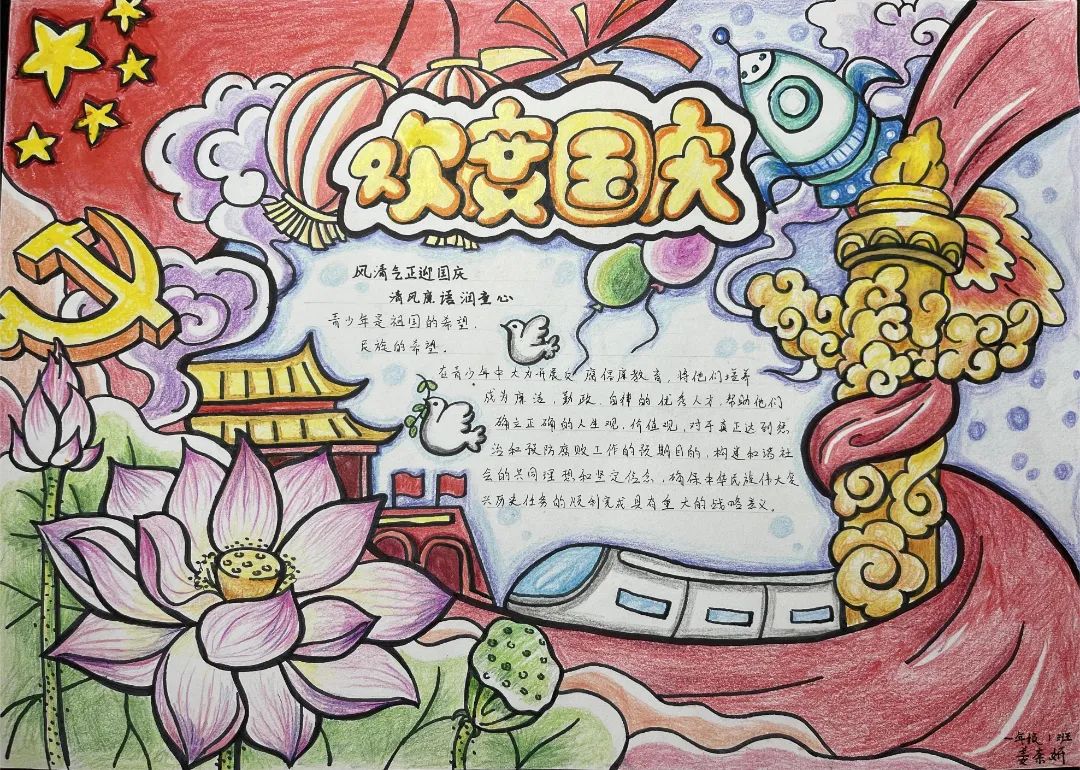 欢度国庆
风清气正迎国庆
清风廉语润童心
青少年是祖国的希望,
民族的希望。
在青少年中大力开展反腐倡廉教育,将他们培养
成为廉洁、勤政、自律的优秀人才,帮助他们
确立正确的人生观,价值观,对于真正达到惩
治和预防腐败工作的预期目的,构建和谐社
会的共同理想和坚定信念,确保中华民族伟大复
兴历史任务的顺利完成具有重大的战略意义。
一年级1班
姜 妍